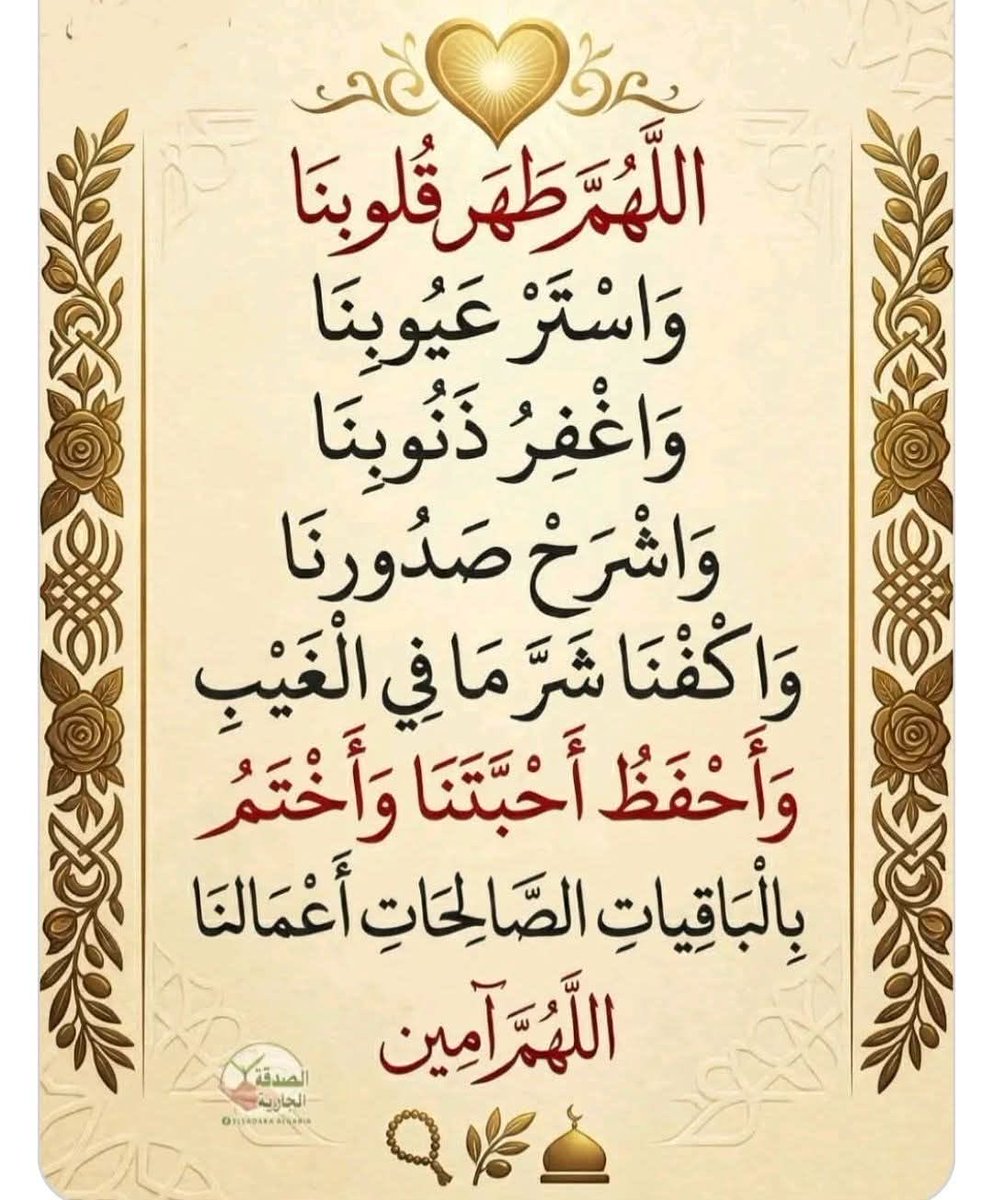 اللَّهُمَّ طَهَر قُلوبنَا
وَاسْتَرْ عَيُوبِنَا
وَاغْفِرُ ذَنُوبِنَا
وَاشْرَحْ صَدُورنَا
وَاكْفْنَا شَرَّ مَا فِي الْغَيْبِ
وَأَحْفَظُ أَحْبَّتَنَا وَأَخْتَمُ
بِالْبَاقِياتِ الصَّالِحَاتِ أَعْمَالنَا
اللَّهُمَّ آمِين
الصدقة
الجارية
ELSADAKA ALGARIA